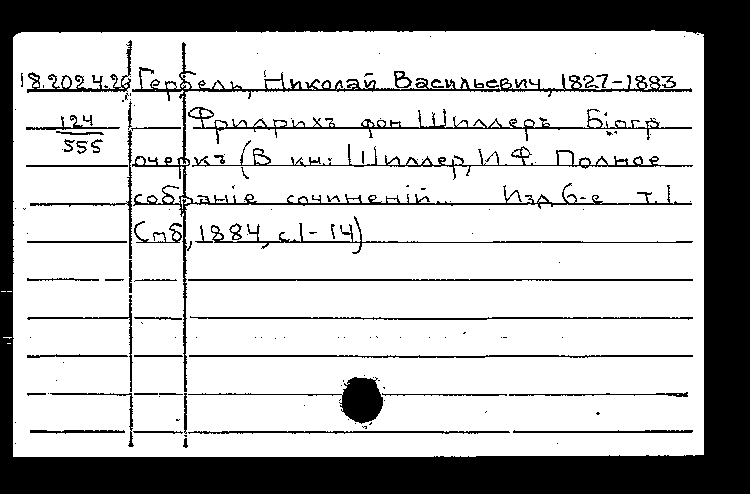 18.202.4.26 Гербель, Николай Васильевич, 1827-1883
124
555
Фридрихъ фон Шиллеръ. Біогр
очеркъ (В кн: Шиллер, И.Ф. Полное
собраніе сочиненій... Изд 6-е т. 1.
Спб, 1884, с. 1-14)